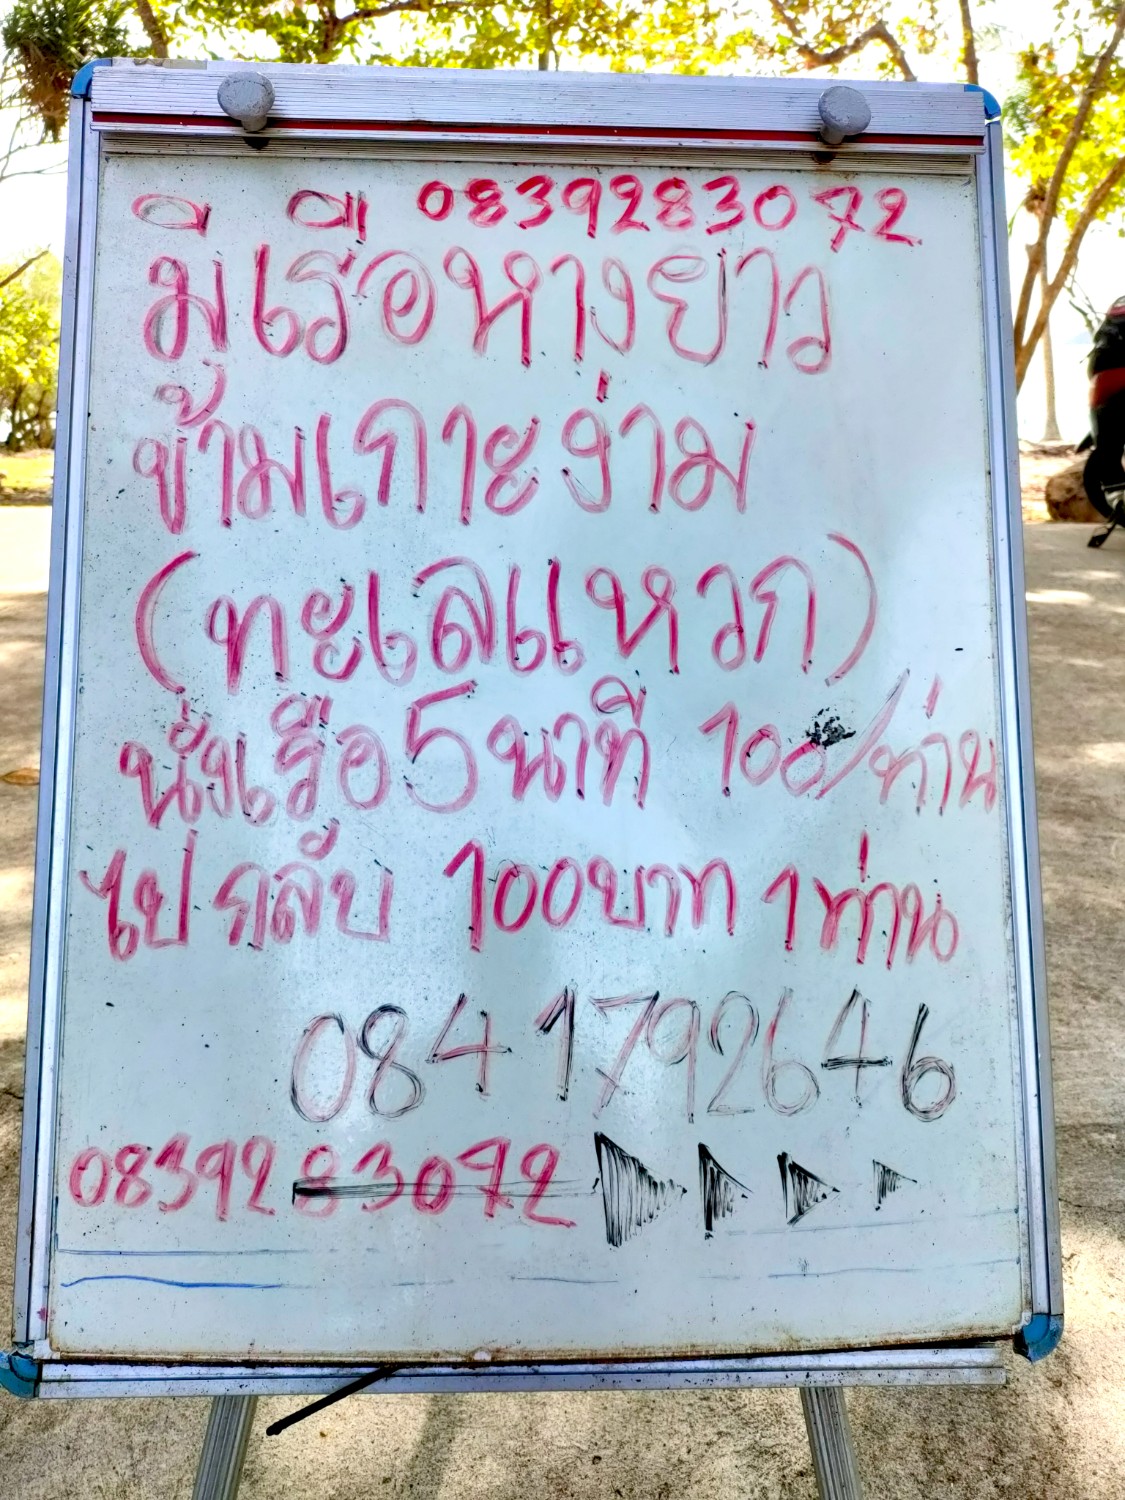 0839283072
มีเรือหางยาว
ข้ามเกาะง่าม
(ทะเลแหวก)
นั่งเรือ 5 นาที 100/ท่าน
ไปกลับ 100บาท 1ท่าน
084 1792646
0839283072